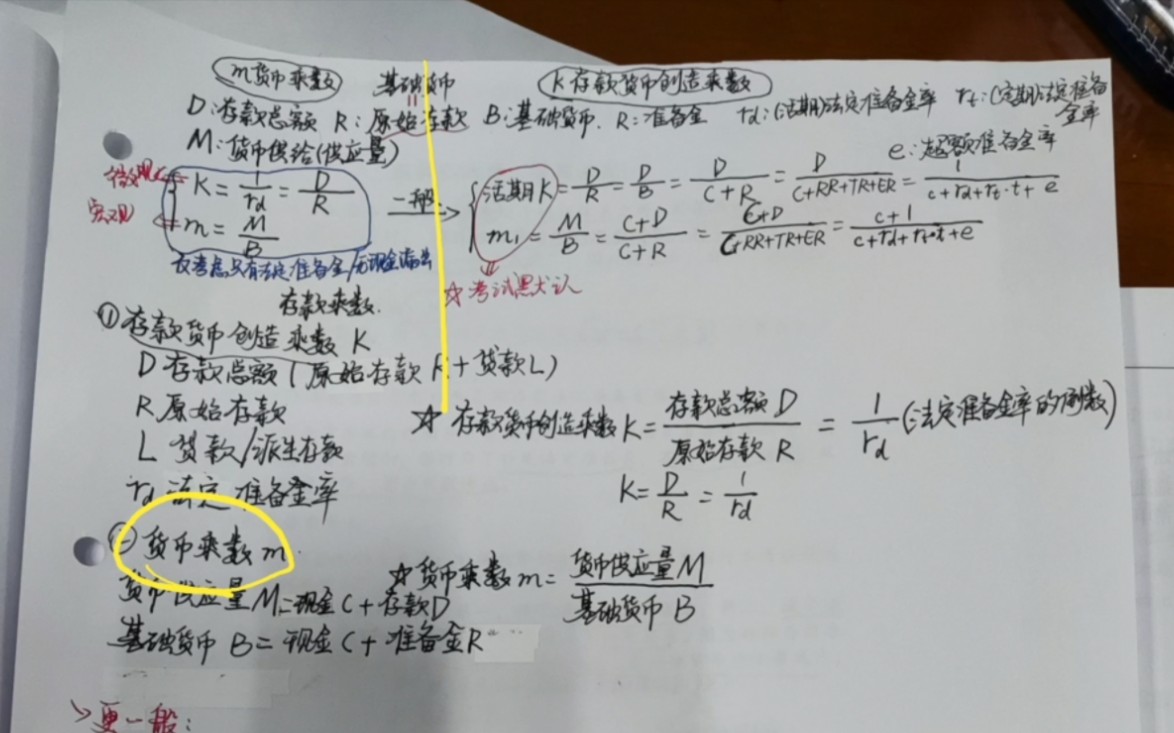 m货币乘数 基础货币 K存款货币创造乘数
D:存款总额 R:原始存款 B:基础货币. R:准备金 rd:(活期)法定准备金率 rt:(定期)法定准备金率
M:货币供给(供应量) e:超额准备金率
微观 K = 1/rd = D/R 一般 活期K = D/R = D/B = D/(C+R) = D/(C+RR+TR+ER) = 1/(c+rd+rt·t+e)
宏观 m = M/B m₁ = M/B = (C+D)/(C+R) = (C+D)/(C+RR+TR+ER) = (c+1)/(c+rd+rt·t+e)
仅考虑只有法定准备金/无现金漏出
☆考试默认
存款乘数.
①存款货币创造乘数 K
D 存款总额(原始存款R+贷款L)
R 原始存款
☆ 存款货币创造乘数 K = 存款总额D/原始存款R = 1/rd (法定准备金率的倒数)
L 贷款/派生存款
rd 法定准备金率
K = D/R = 1/rd
② 货币乘数 m.
☆货币乘数m = 货币供应量M/基础货币B
货币供应量M=现金C+存款D
基础货币B=现金C+准备金R
更一般: